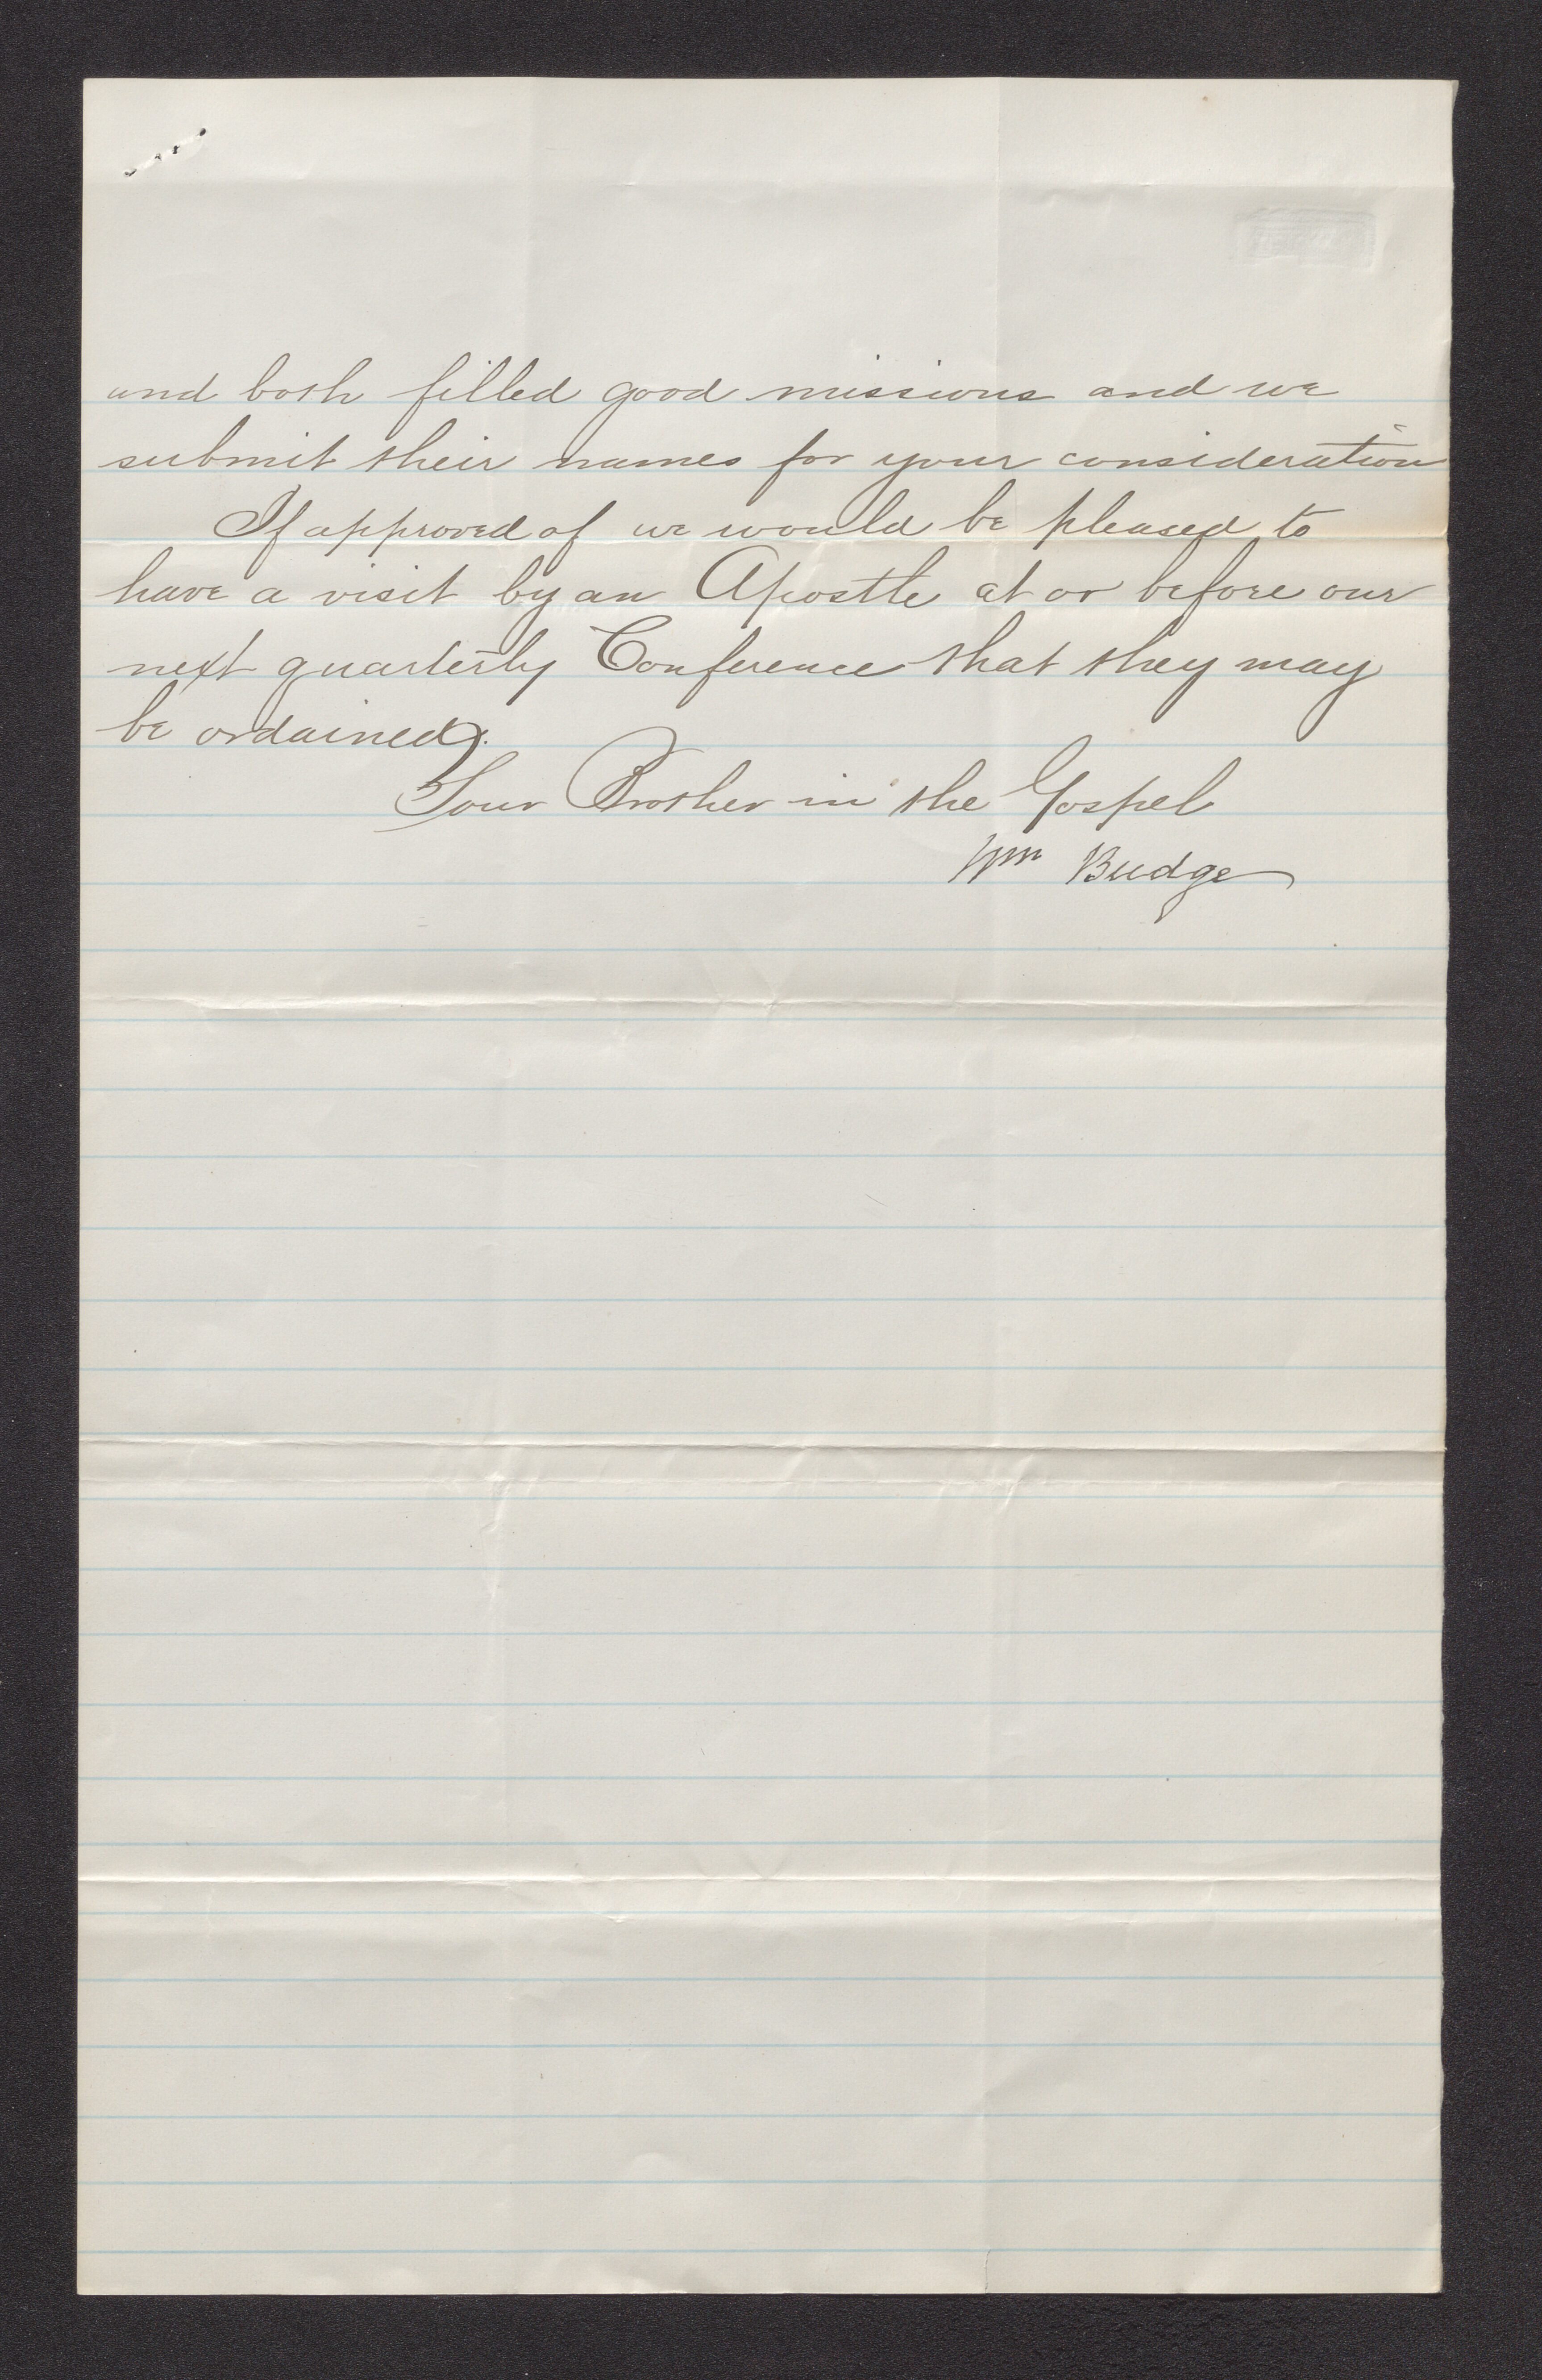 and both filled good missions and we
submit their names for your consideration
If approved of we would be pleased to
have a visit by an Apostle at or before our
next quarterly Conference that they may
be ordained.
Your Brother in the Gospel
Wm Budge